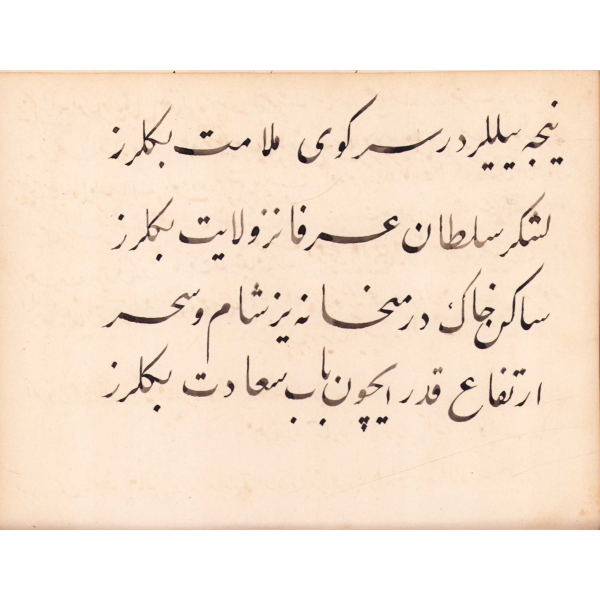 نیجه ییللردر سر کوی ملامت بکلرز
لشکر سلطان عرفانز ولایت بکلرز
ساکن خاک در میخانه یز شام و سحر
ارتفاع قدر ایچون باب سعادت بکلرز